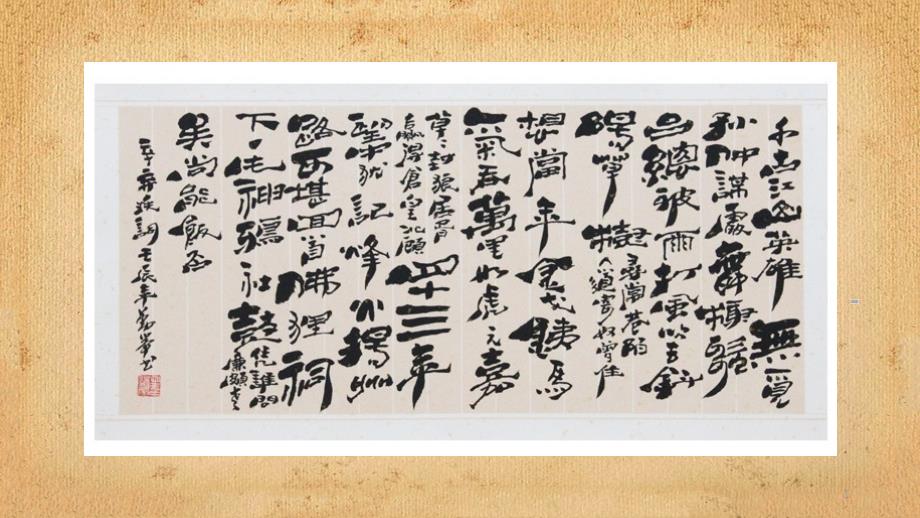 千古江山英雄無覓
孫仲謀處舞榭歌
台總被雨打風吹去斜
陽草樹尋常巷陌
人道寄奴曾住
想當年金戈鐵馬
氣吞萬里如虎元嘉
草〻封狼居胥
贏得倉皇北顧
四十三年
望中猶記烽火揚州
路可堪回首佛狸祠
下一片神鴉社鼓凭誰問
廉頗老
矣尚能飯否
辛棄疾詞壬辰年書